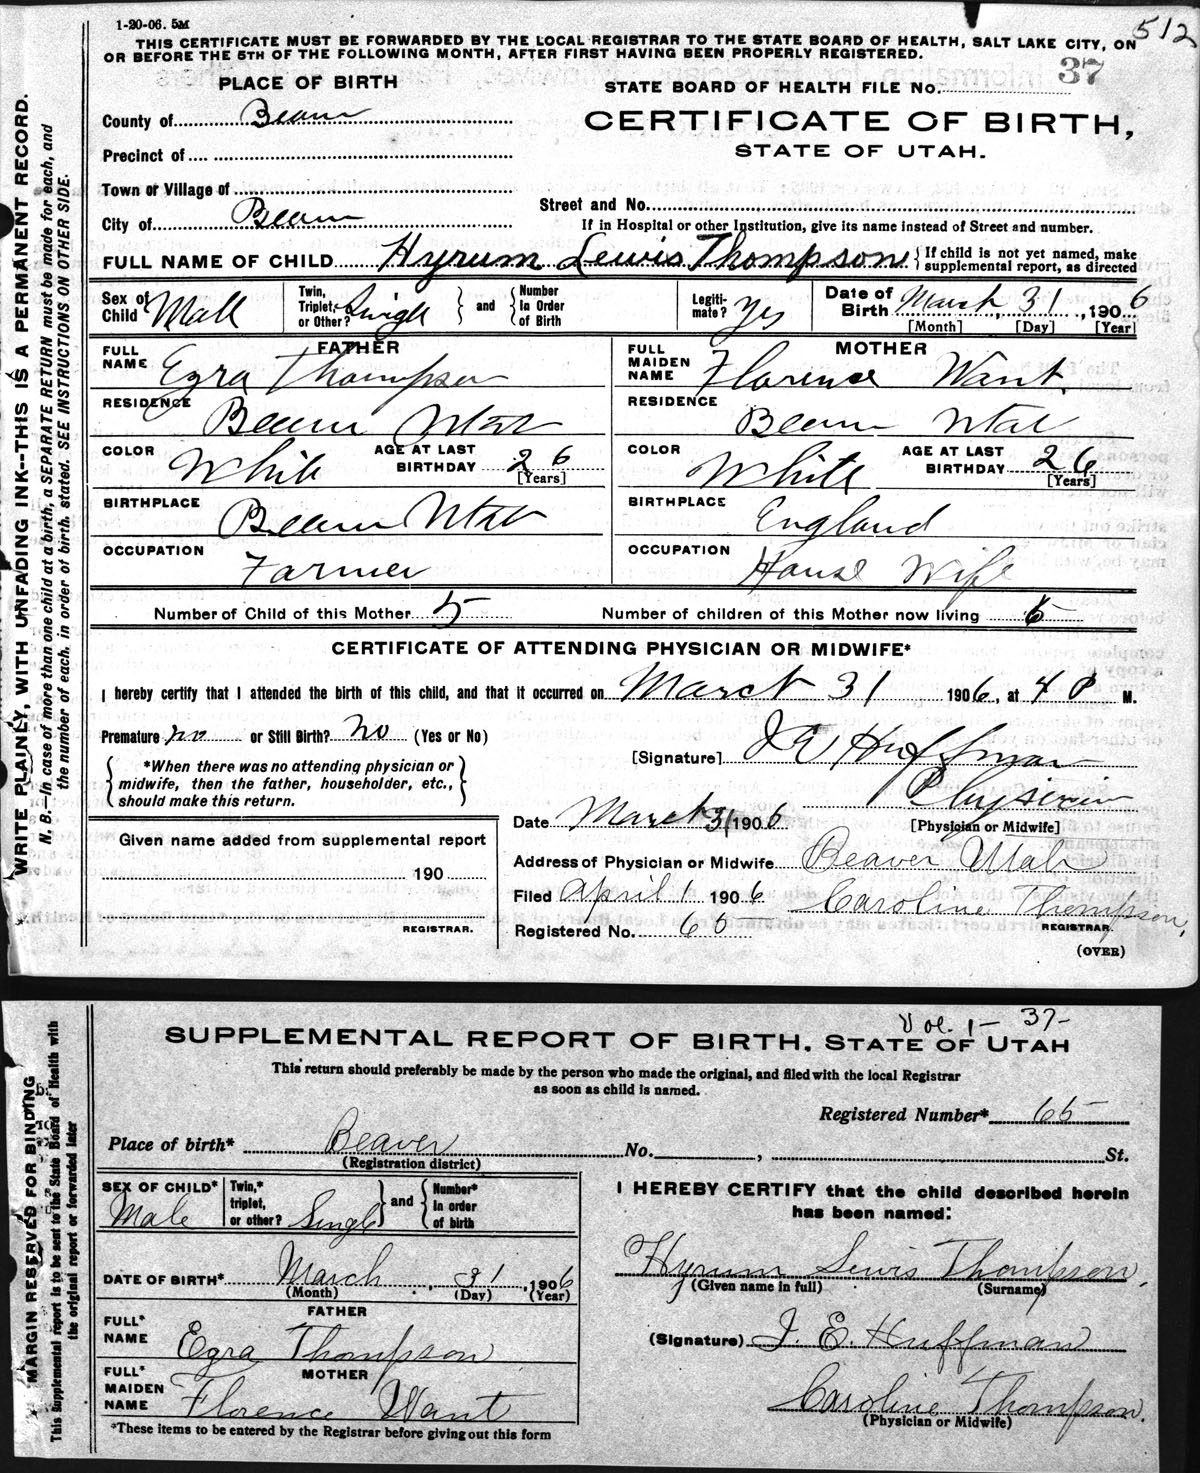 512
1-20-06. 5M
THIS CERTIFICATE MUST BE FORWARDED BY THE LOCAL REGISTRAR TO THE STATE BOARD OF HEALTH, SALT LAKE CITY, ON
OR BEFORE THE 5TH OF THE FOLLOWING MONTH, AFTER FIRST HAVING BEEN PROPERLY REGISTERED.
WRITE PLAINLY, WITH UNFADING INK--THIS IS A PERMANENT RECORD.
N. B.--In case of more than one child at a birth, a SEPARATE RETURN must be made for each, and
the number of each, in order of birth, stated. SEE INSTRUCTIONS ON OTHER SIDE.
PLACE OF BIRTH
STATE BOARD OF HEALTH FILE No. 37
County of Beaver
CERTIFICATE OF BIRTH,
STATE OF UTAH.
Precinct of
Town or Village of
Street and No.
City of Beaver
If in Hospital or other Institution, give its name instead of Street and number.
FULL NAME OF CHILD Hyrum Lewis Thompson { If child is not yet named, make supplemental report, as directed
Sex of Child Male Twin, Triplet, or Other? Single } and { Number In Order of Birth Legitimate? Yes Date of Birth March, 31, 1906
[Month] [Day] [Year]
FATHER MOTHER
FULL NAME Ezra Thompson FULL MAIDEN NAME Florence Want
RESIDENCE Beaver Utah RESIDENCE Beaver Utah
COLOR White AGE AT LAST BIRTHDAY 26 [Years] COLOR White AGE AT LAST BIRTHDAY 26 [Years]
BIRTHPLACE Beaver Utah BIRTHPLACE England
OCCUPATION Farmer OCCUPATION House Wife
Number of Child of this Mother 5 Number of children of this Mother now living 5
CERTIFICATE OF ATTENDING PHYSICIAN OR MIDWIFE*
I hereby certify that I attended the birth of this child, and that it occurred on March 31 1906, at 4 P M.
Premature no or Still Birth? no (Yes or No)
[Signature] J E Huffman
{ *When there was no attending physician or midwife, then the father, householder, etc., should make this return. }
Physician
[Physician or Midwife]
Date March 31 1906
Given name added from supplemental report
190
REGISTRAR.
Address of Physician or Midwife Beaver Utah
Filed April 1 1906 Caroline Thompson,
REGISTRAR.
Registered No. 65
(OVER)
Vol. 1- 37-
SUPPLEMENTAL REPORT OF BIRTH, STATE OF UTAH
This return should preferably be made by the person who made the original, and filed with the local Registrar
as soon as child is named.
MARGIN RESERVED FOR BINDING
This supplemental report is to be sent to the State Board of Health with
the original report or forwarded later
Registered Number* 65
Place of birth* Beaver No. , St.
(Registration district)
SEX OF CHILD* Male Twin,* triplet, or other? Single } and { Number* in order of birth
I HEREBY CERTIFY that the child described herein
has been named:
Hyrum Lewis Thompson.
(Given name in full) (Surname)
DATE OF BIRTH* March, 31, 1906
(Month) (Day) (Year)
FATHER
FULL* NAME Ezra Thompson
(Signature) J. E. Huffman
MOTHER
FULL* MAIDEN NAME Florence Want
Caroline Thompson.
(Physician or Midwife)
*These items to be entered by the Registrar before giving out this form